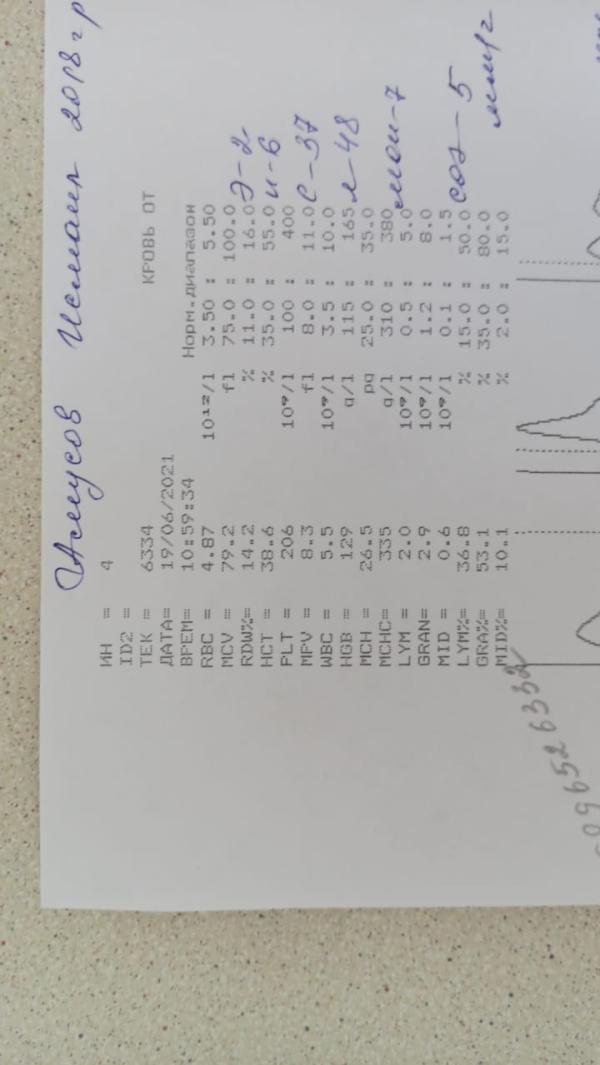 Исмаил 2018 г р
ИН = 4
ID2 =
ТЕК = 6334 КРОВЬ ОТ
ДАТА= 19/06/2021
ВРЕМ= 10:59:34 Норм.диапазон
RBC = 4.87 10¹²/l 3.50 : 5.50
MCV = 79.2 fl 75.0 : 100.0
RDW%= 14.2 % 11.0 : 16.0 Э-2
HCT = 38.6 % 35.0 : 55.0 п-6
PLT = 206 10⁹/l 100 : 400
MPV = 8.3 fl 8.0 : 11.0 С-37
WBC = 5.5 10⁹/l 3.5 : 10.0
HGB = 129 g/l 115 : 165 л-48
MCH = 26.5 pg 25.0 : 35.0
MCHC= 335 g/l 310 : 380 мон-7
LYM = 2.0 10⁹/l 0.5 : 5.0
GRAN= 2.9 10⁹/l 1.2 : 8.0
MID = 0.6 10⁹/l 0.1 : 1.5 соэ-5
LYM%= 36.8 % 15.0 : 50.0 мм/г
GRA%= 53.1 % 35.0 : 80.0
MID%= 10.1 % 2.0 : 15.0